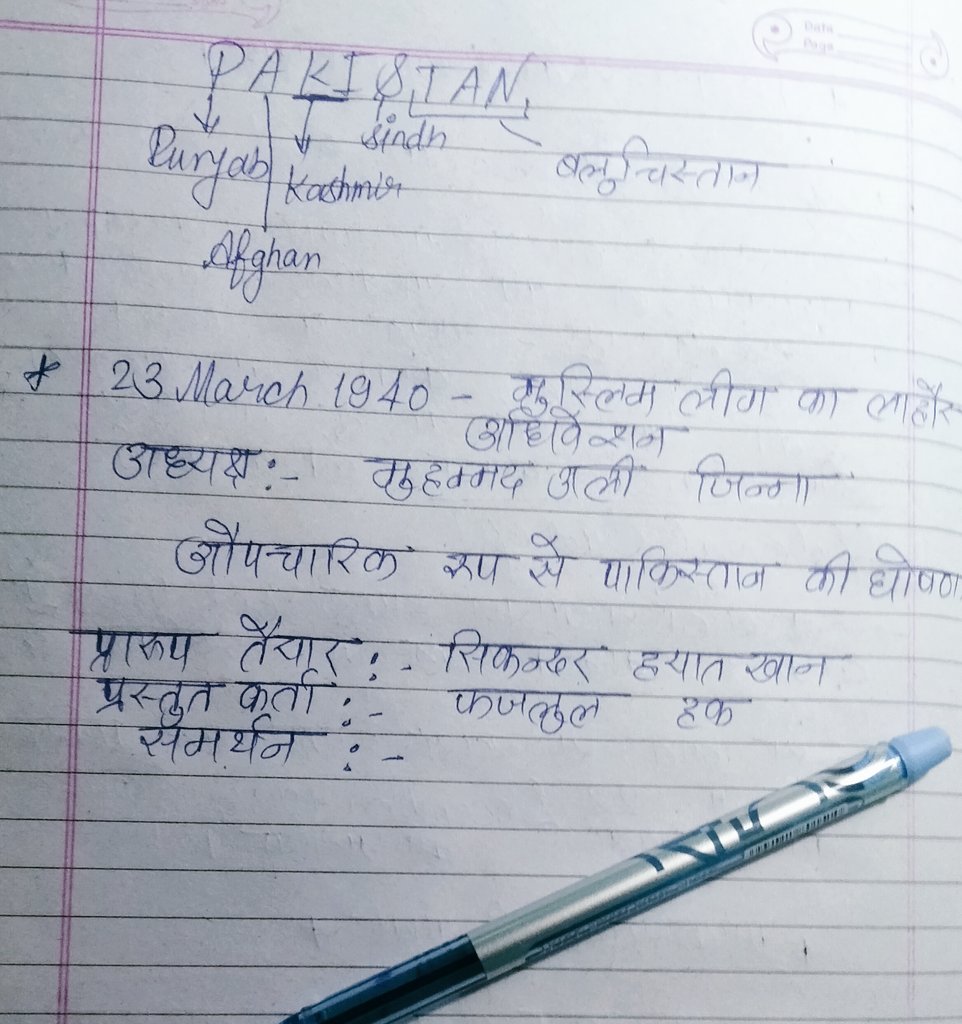 Data
Page
PAKISTAN
Punjab
Kashmir
Sindh
बलुचिस्तान
Afghan
* 23 March 1940 - मुस्लिम लीग का लाहौर
अधिवेशन
अध्यक्ष :- मुहम्मद अली जिन्ना
औपचारिक रूप से पाकिस्तान की घोषणा
प्रारूप तैयार :- सिकन्दर हयात खान
प्रस्तुत कर्ता :- फजलुल हक
समर्थन :-